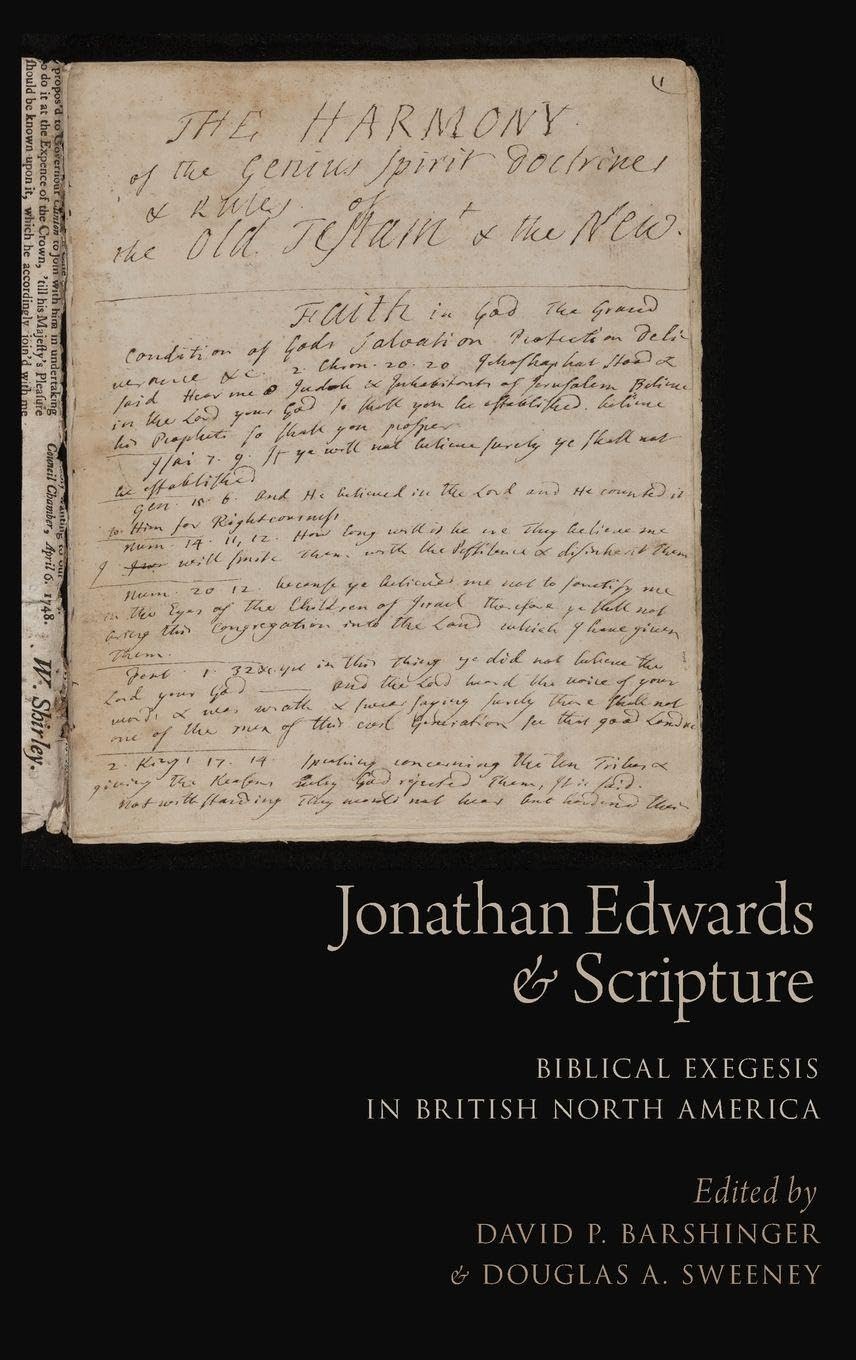 (1
THE HARMONY
of the Genius Spirit Doctrines
& Rules of
the Old Testam^t & the New.
Faith in God The Grand
Condition of Gods Salvation Protection Deli
verance &c. 2. Chron. 20. 20 Jehoshaphat stood &
said Hear me O Judah & Inhabitants of Jerusalem Believe
in the Lord your God so shall you be established. believe
his Prophets so shall you prosper
Isai 7. 9. If ye will not believe surely ye shall not
be established
Gen. 15. 6. and He believed in the Lord and He counted it
to Him for Righteousness
Num. 14. 11, 12. How long will it be ere They believe me
I will smite Them with the Pestilence & disinherit them
Num. 20 12. because ye believed me not to sanctify me
in the Eyes of the Children of Israel therefore ye shall not
bring this Congregation into the Land which I have given
Them.
Deut 1. 32 &c. yet in this Thing ye did not believe the
Lord your God —— and the Lord heard the voice of your
words & was wrath & swear saying surely there shall not
one of the men of this evil Generation see that good Land &c
2. Kings 17. 14. speaking concerning the ten Tribes &
giving the Reasons why God rejected Them, it is said.
Notwithstanding They would not hear but hardned their
propos'd to Governour Clinton to join with him in undertaking
to do it at the Expence of the Crown, 'till his Majesty's Pleasure
should be known upon it, which he accordingly join'd with me
Council Chamber, April 6. 1748.
W. Shirley.
Jonathan Edwards
& Scripture
BIBLICAL EXEGESIS
IN BRITISH NORTH AMERICA
Edited by
DAVID P. BARSHINGER
& DOUGLAS A. SWEENEY